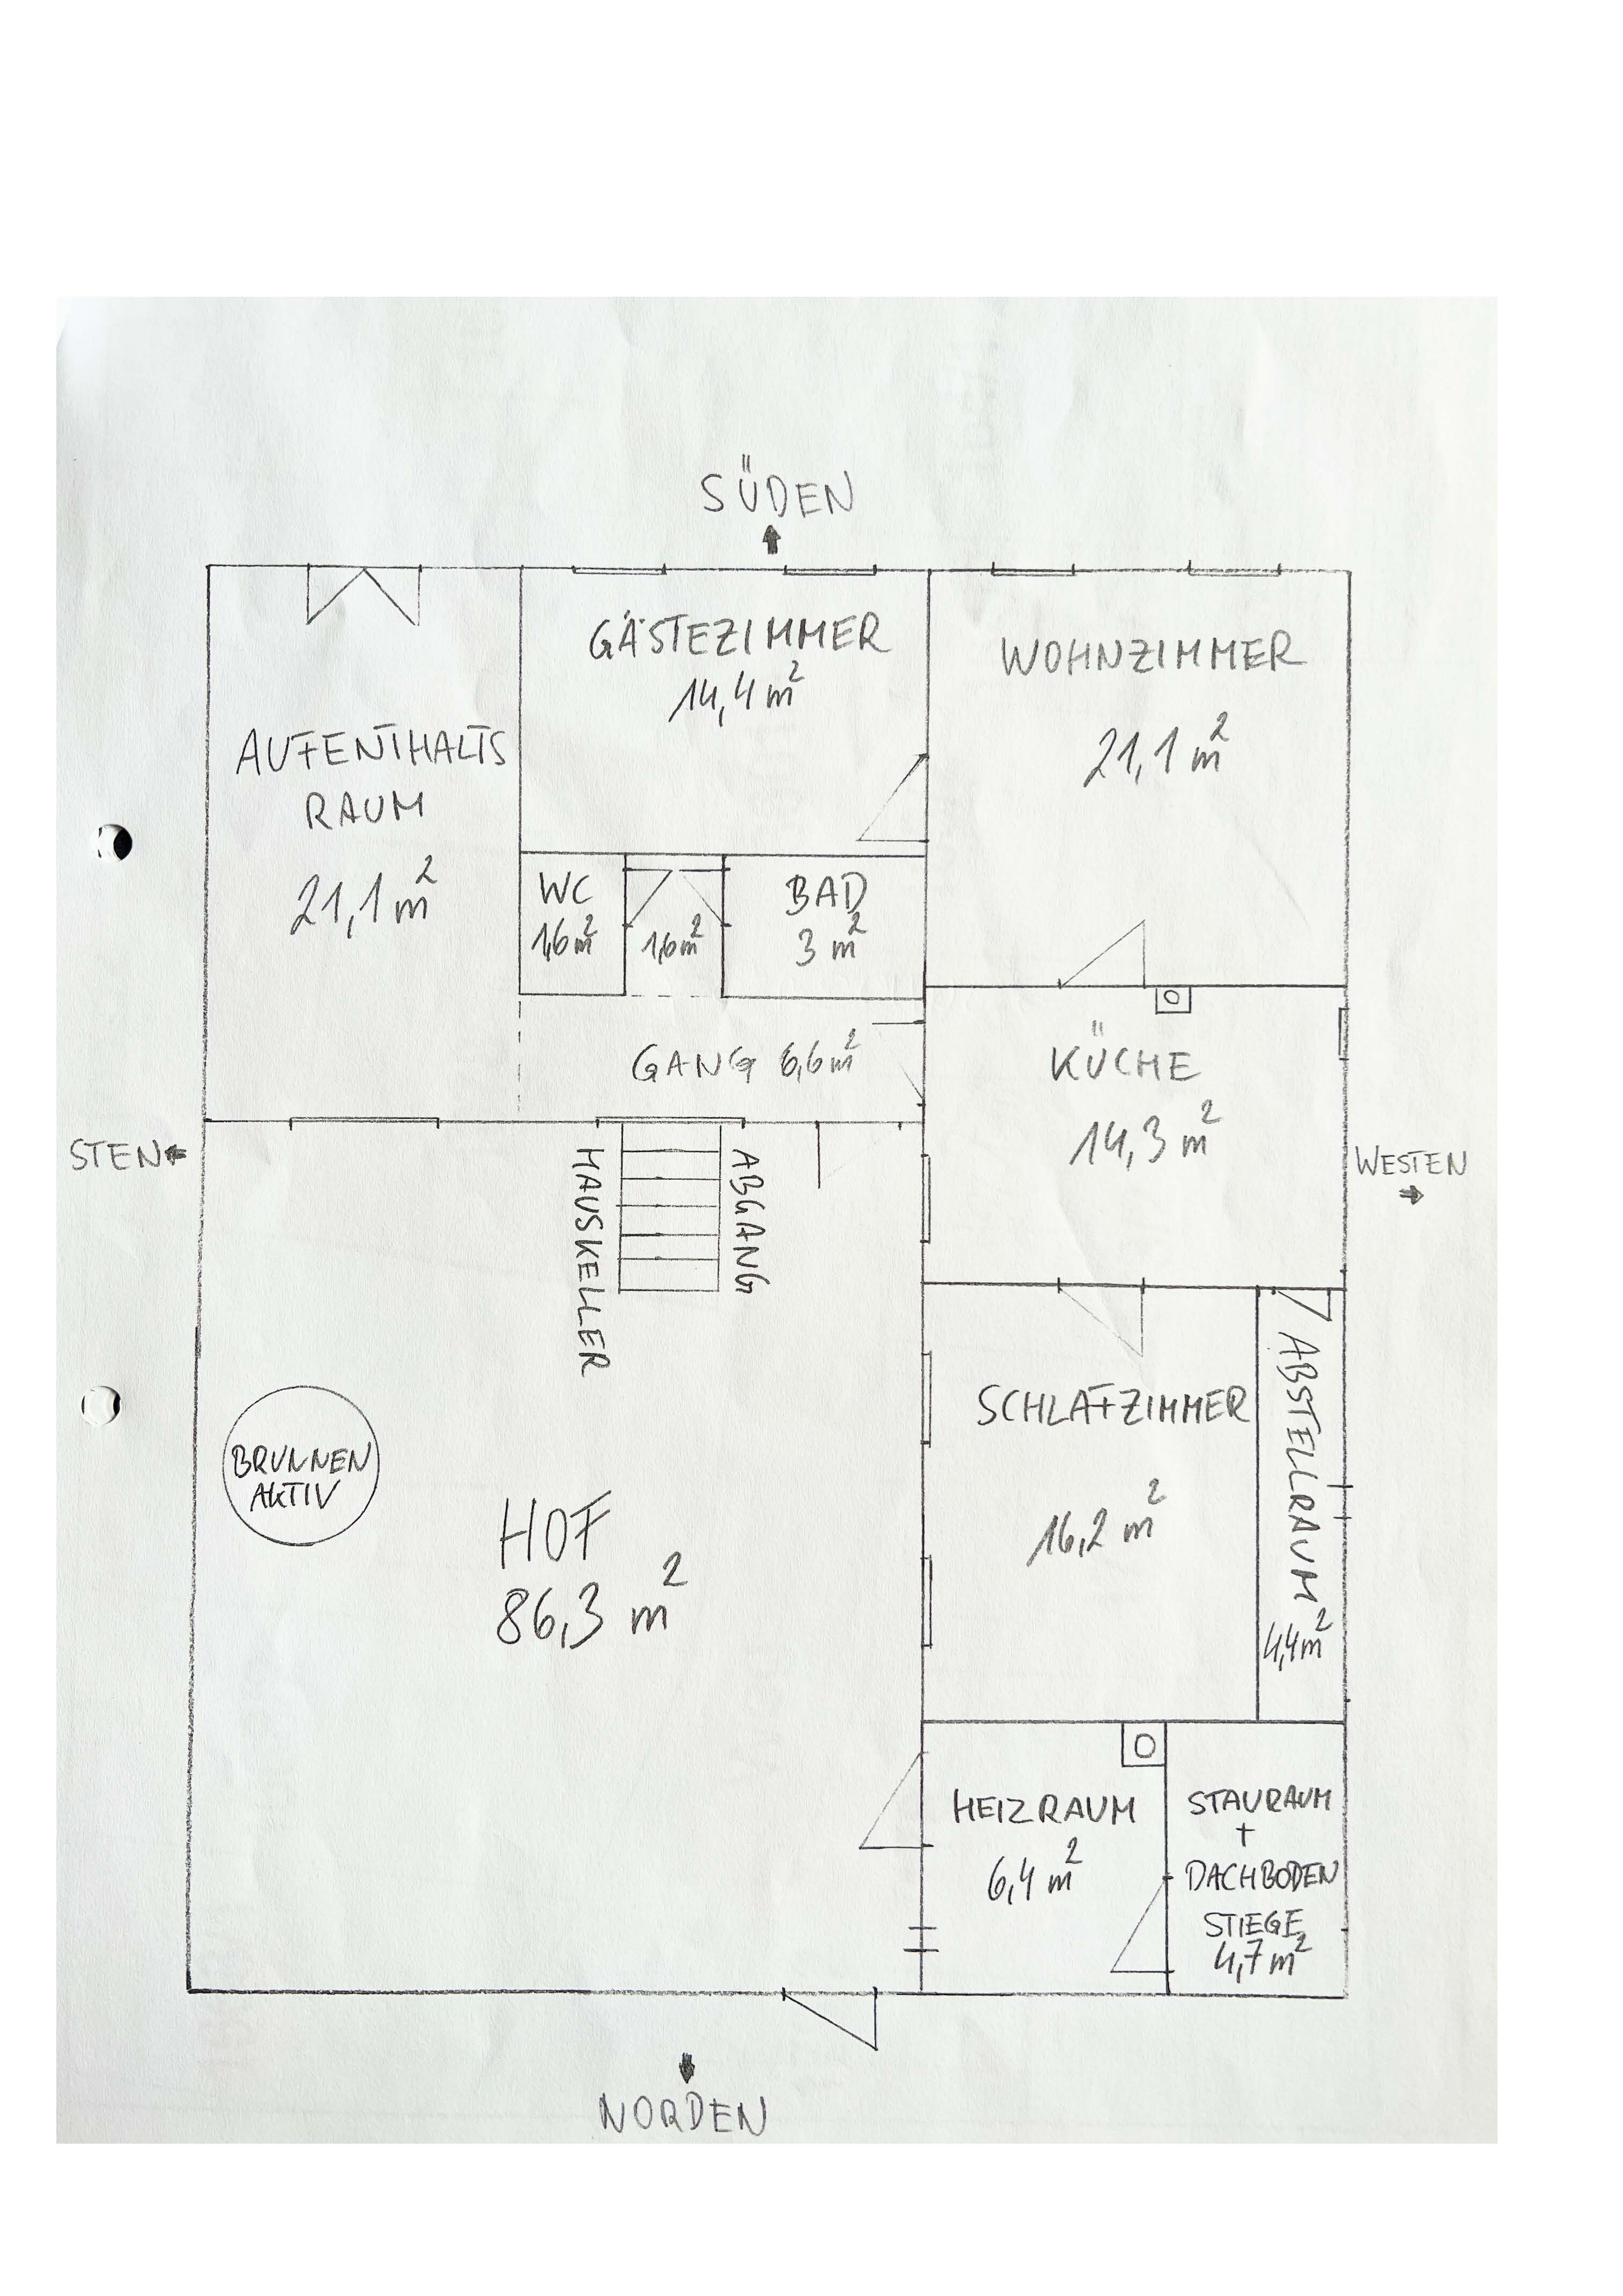 SÜDEN
GÄSTEZIMMER
14,4 m²
WOHNZIMMER
21,1 m²
AUFENTHALTS
RAUM
21,1 m²
WC
1,6 m²
1,6 m²
BAD
3 m²
GANG 6,6 m²
KÜCHE
14,3 m²
STEN
WESTEN
HAUSKELLER
ABGANG
SCHLAFZIMMER
16,2 m²
ABSTELLRAUM
4,4 m²
BRUNNEN
AKTIV
HOF
86,3 m²
HEIZRAUM
6,4 m²
STAURAUM
+
DACHBODEN
STIEGE
4,7 m²
NORDEN